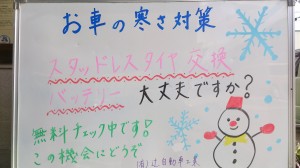 お車の寒さ対策
スタッドレスタイヤ交換
バッテリー大丈夫ですか?
無料チェック中です!
この機会にどうぞ
(有)辻自動車工業